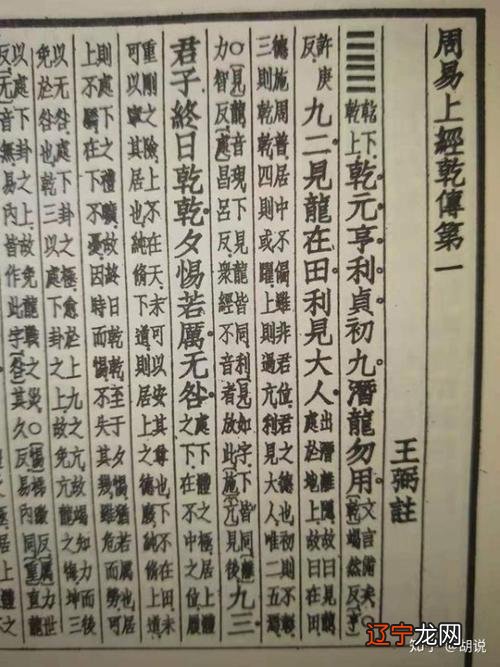 周易上經乾傳第一
王弼註
䷀乾下乾上乾元亨利貞初九潛龍勿用文言備矣乾竭然反亨
許庚反九二見龍在田利見大人出潛離隱故曰見龍處於地上故曰在田
德施周普居中不偏雖非君位君之德也初則不彰
三則乾乾四則或躍上則過亢利見大人唯二五焉
○見龍音現下見龍皆同利見如字下皆同離力智反處昌呂反眾經不音者放此施見後九三
君子終日乾乾夕惕若厲无咎處下體之極居上體之下在不中之位履
重剛之險上不在天未可以安其尊也下不在田未
可以寧其居也純脩下道則居上之德廢純脩
上道則處下之禮曠故終日乾乾至于夕惕猶若厲也
上不驕在下不憂因時而惕不失其幾雖危而勞可
以无咎處下卦之極愈於上九之亢故竭知力而後
免於咎也乾三以處下卦之上故免亢龍之悔坤三
以處下卦之上故免龍戰之災○惕反厲力世
反无音無易內皆作此字咎其久反易內同重直龍
知乎 @胡说
辽宁龙网